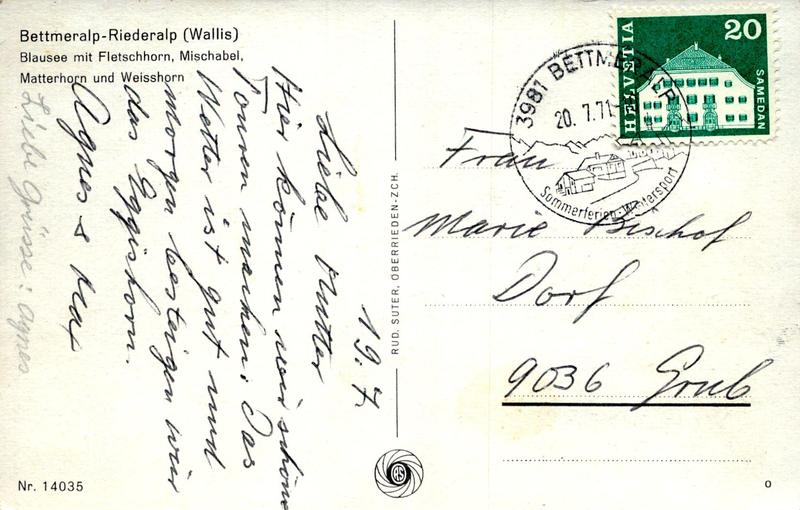 Bettmeralp-Riederalp (Wallis)
Blausee mit Fletschhorn, Mischabel,
Matterhorn und Weisshorn
19.7
Liebe Mutter
Hier können wir schöne
Touren machen. Das
Wetter ist gut und
morgen besteigen wir
das Eggishorn.
Agnes & Max
Liebe Grüsse: Agnes
Nr. 14035
RUD. SUTER, OBERRIEDEN-ZCH.
HELVETIA
20
SAMEDAN
3981 BETTMERALP
20.7.71
Sommerferien-Wintersport
Frau
Marie Bischof
Dorf
9036 Grub
0